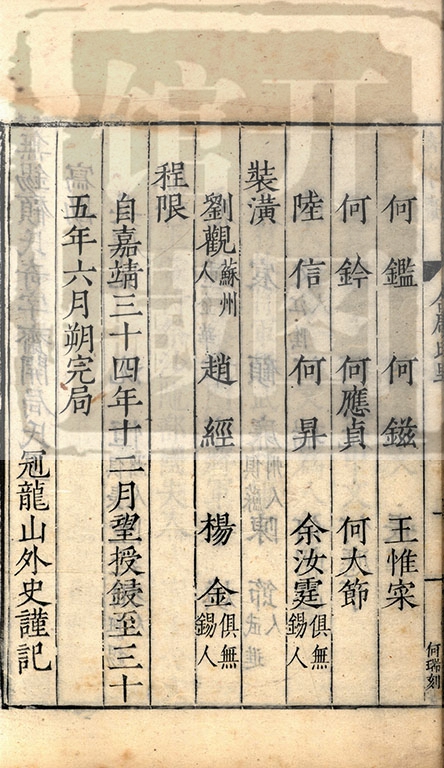 何鑑　何鎡　王惟寀
何鈐　何應貞　何大節
陸信　何昇　余汝霆俱無錫人
裝潢
劉觀蘇州人　趙經　楊金俱無錫人
程限
自嘉靖三十四年十二月望授鋟至三十
五年六月朔完局　冠龍山外史謹記
何瑞刻